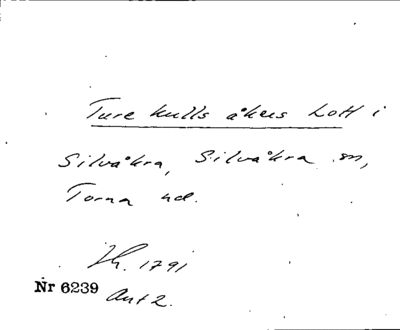 Ture kulls åkers Lott i
Silvåkra, Silvåkra sn,
Torna hd.
1791
Nr 6239
Ant 2.